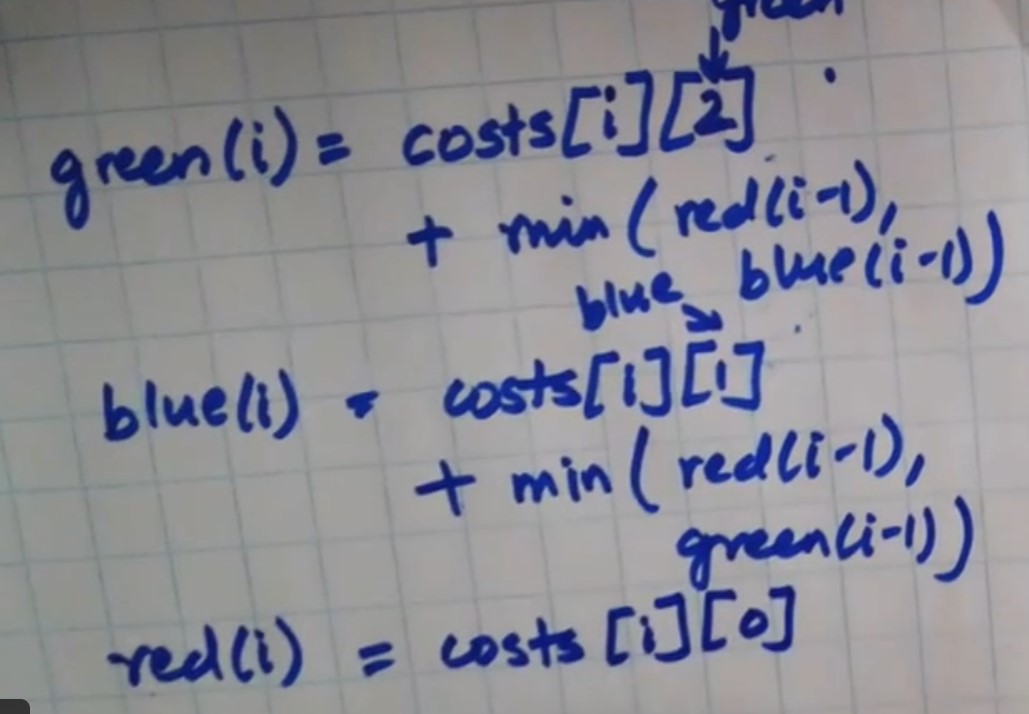 green
green(i) = costs[i][2]
+ min ( red(i-1),
blue(i-1))
blue
blue(i) = costs[i][1]
+ min ( red(i-1),
green(i-1))
red(i) = costs [i][0]